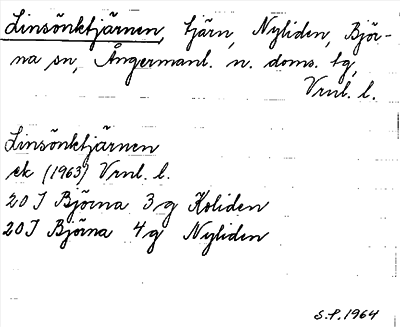 Linsönktjärnen, tjärn, Nyliden, Björ-
na sn, Ångermanl. n. doms. tg,
Vrnl. l.
Linsönktjärnen
ek (1963) Vrnl. l.
20 J Björna 3g Koliden
20 J Björna 4g Nyliden
S.P. 1964